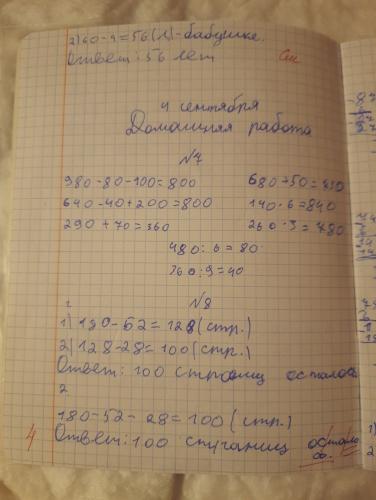 2) 60-4=56(л)-бабушке.
Ответ: 56 лет
См
4 сентября
Домашняя работа
№7
980-80-100=800 680+50=730
640-40+200=800 140·6=840
290+70=360 260·3=780
480:6=80
360:9=40
№8
1
1) 180-52=128(стр.)
2) 128-28=100(стр.)
Ответ: 100 страниц осталось
2
180-52-28=100(стр.)
4 Ответ: 100 спраниц остало
сь.